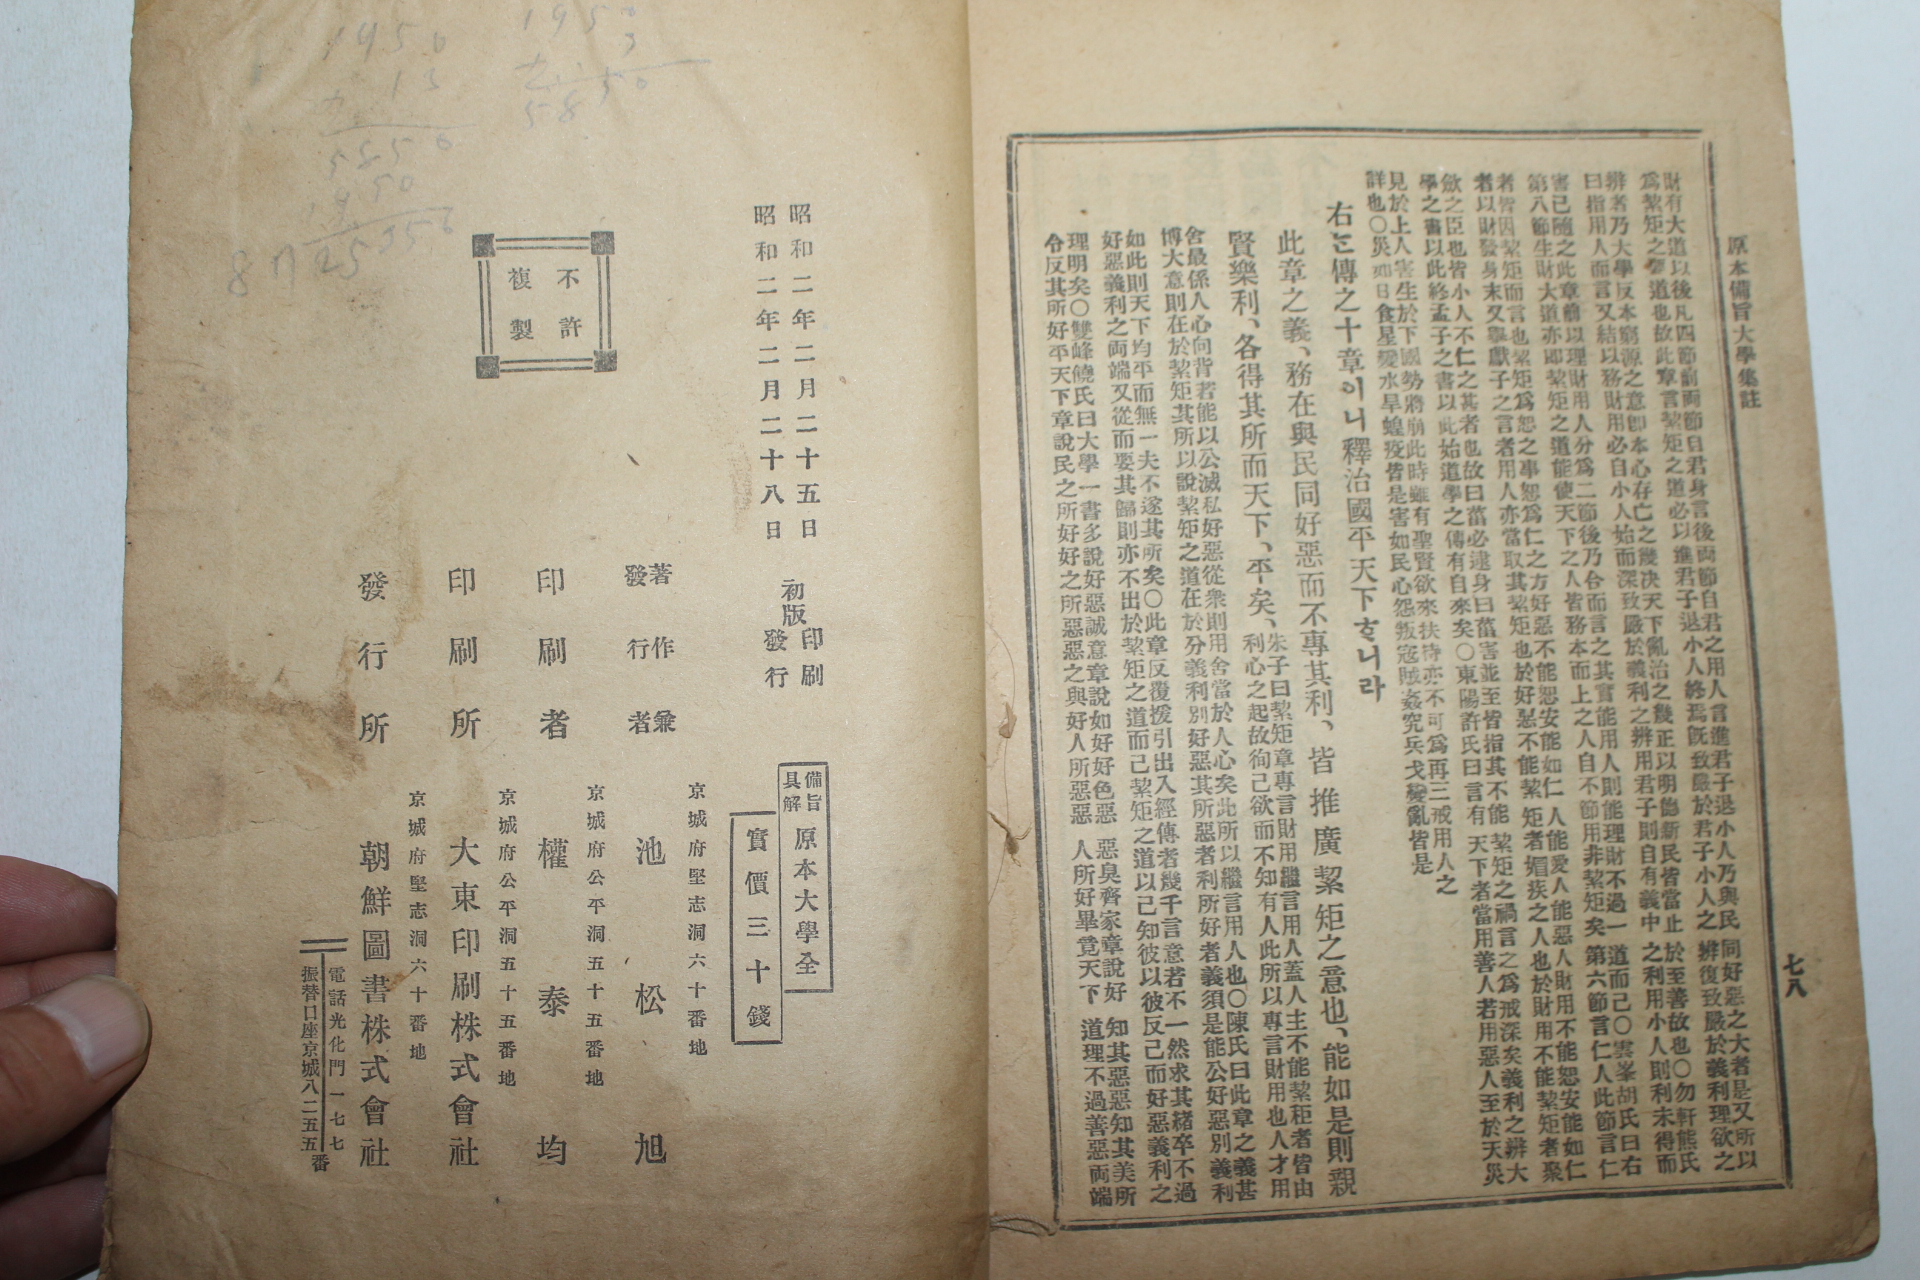 原本備旨大學集註
七八
財有大道以後凡四節前兩節自君身言後兩節自君之用人言進君子退小人乃與民同好惡之大者是又所以
爲絜矩之要道也故此章言絜矩之道必以進君子退小人終焉旣致嚴於君子小人之辨復致嚴於義利理欲之
辨者乃大學反本窮源之意卽本心存亡之幾決天下亂治之幾正以明德新民皆當止於至善故也○勿軒熊氏
曰指用人而言又結以務財用必自小人始而深致嚴於義利之辨用君子則自有義中之利用小人則利未得而
害已隨之此章前以理財用人分爲二節後乃合而言之其實能用人則能理財不過一道而已○雲峯胡氏曰右
第八節生財大道亦卽絜矩之道能使天下之人皆務本而上之人自不節用非絜矩矣第六節言仁人此節言仁
者皆因絜矩而言也絜矩爲恕之事恕爲仁之方好惡不能恕安能如仁人能愛人能惡人財用不能恕安能如仁
者以財發身末又擧獻子之言者用人亦當取其絜矩也於好惡不能絜矩者媢疾之人也於財用不能絜矩者聚
斂之臣也皆小人不仁之甚者也故曰菑必逮身曰菑害並至皆指其不能絜矩之禍言之爲戒深矣義利之辨大
學之書以此終孟子之書以此始道學之傳有自來矣○東陽許氏曰言有天下者當用善人若用惡人至於天災
見於上人害生於下國勢將崩此時雖有聖賢欲來扶持亦不可爲再三戒用人之
詳也○災如日食星變水旱蝗疫皆是害如民心怨叛寇賊姦宄兵戈變亂皆是
右는傳之十章이니釋治國平天下하니라
此章之義、務在與民同好惡而不專其利、皆推廣絜矩之意也、能如是則親
賢樂利、各得其所而天下、平矣、
朱子曰絜矩章專言財用繼言用人蓋人主不能絜矩者皆由
利心之起故徇己欲而不知有人此所以專言財用也人才用
舍最係人心向背若能以公滅私好惡從衆則用舍當於人心矣此所以繼言用人也○陳氏曰此章之義甚
博大意則在於絜矩其所以說絜矩之道在於分義利別好惡其所惡者利所好者義須是能公好惡別義利
如此則天下均平而無一夫不遂其所矣○此章反覆援引出入經傳者幾千言意若不一然求其緖卒不過
好惡義利之兩端又從而要其歸則亦不出於絜矩之道而已絜矩之道以己知彼以彼反己而好惡義利之
理明矣○雙峰饒氏曰大學一書多說好惡誠意章說如好好色惡惡臭齊家章說好知其惡惡知其美所
令反其所好平天下章說民之所好好之所惡惡之與好人所惡惡人所好畢竟天下道理不過善惡兩端
昭和二年二月二十五日
昭和二年二月二十八日
初版
印刷
發行
不許
複製
備旨
具解
原本大學全
實價三十錢
著作兼
發行者
京城府堅志洞六十番地
池松旭
印刷者
京城府公平洞五十五番地
權泰均
印刷所
京城府公平洞五十五番地
大東印刷株式會社
發行所
京城府堅志洞六十番地
朝鮮圖書株式會社
電話光化門一一七七番
振替口座京城八二五五番